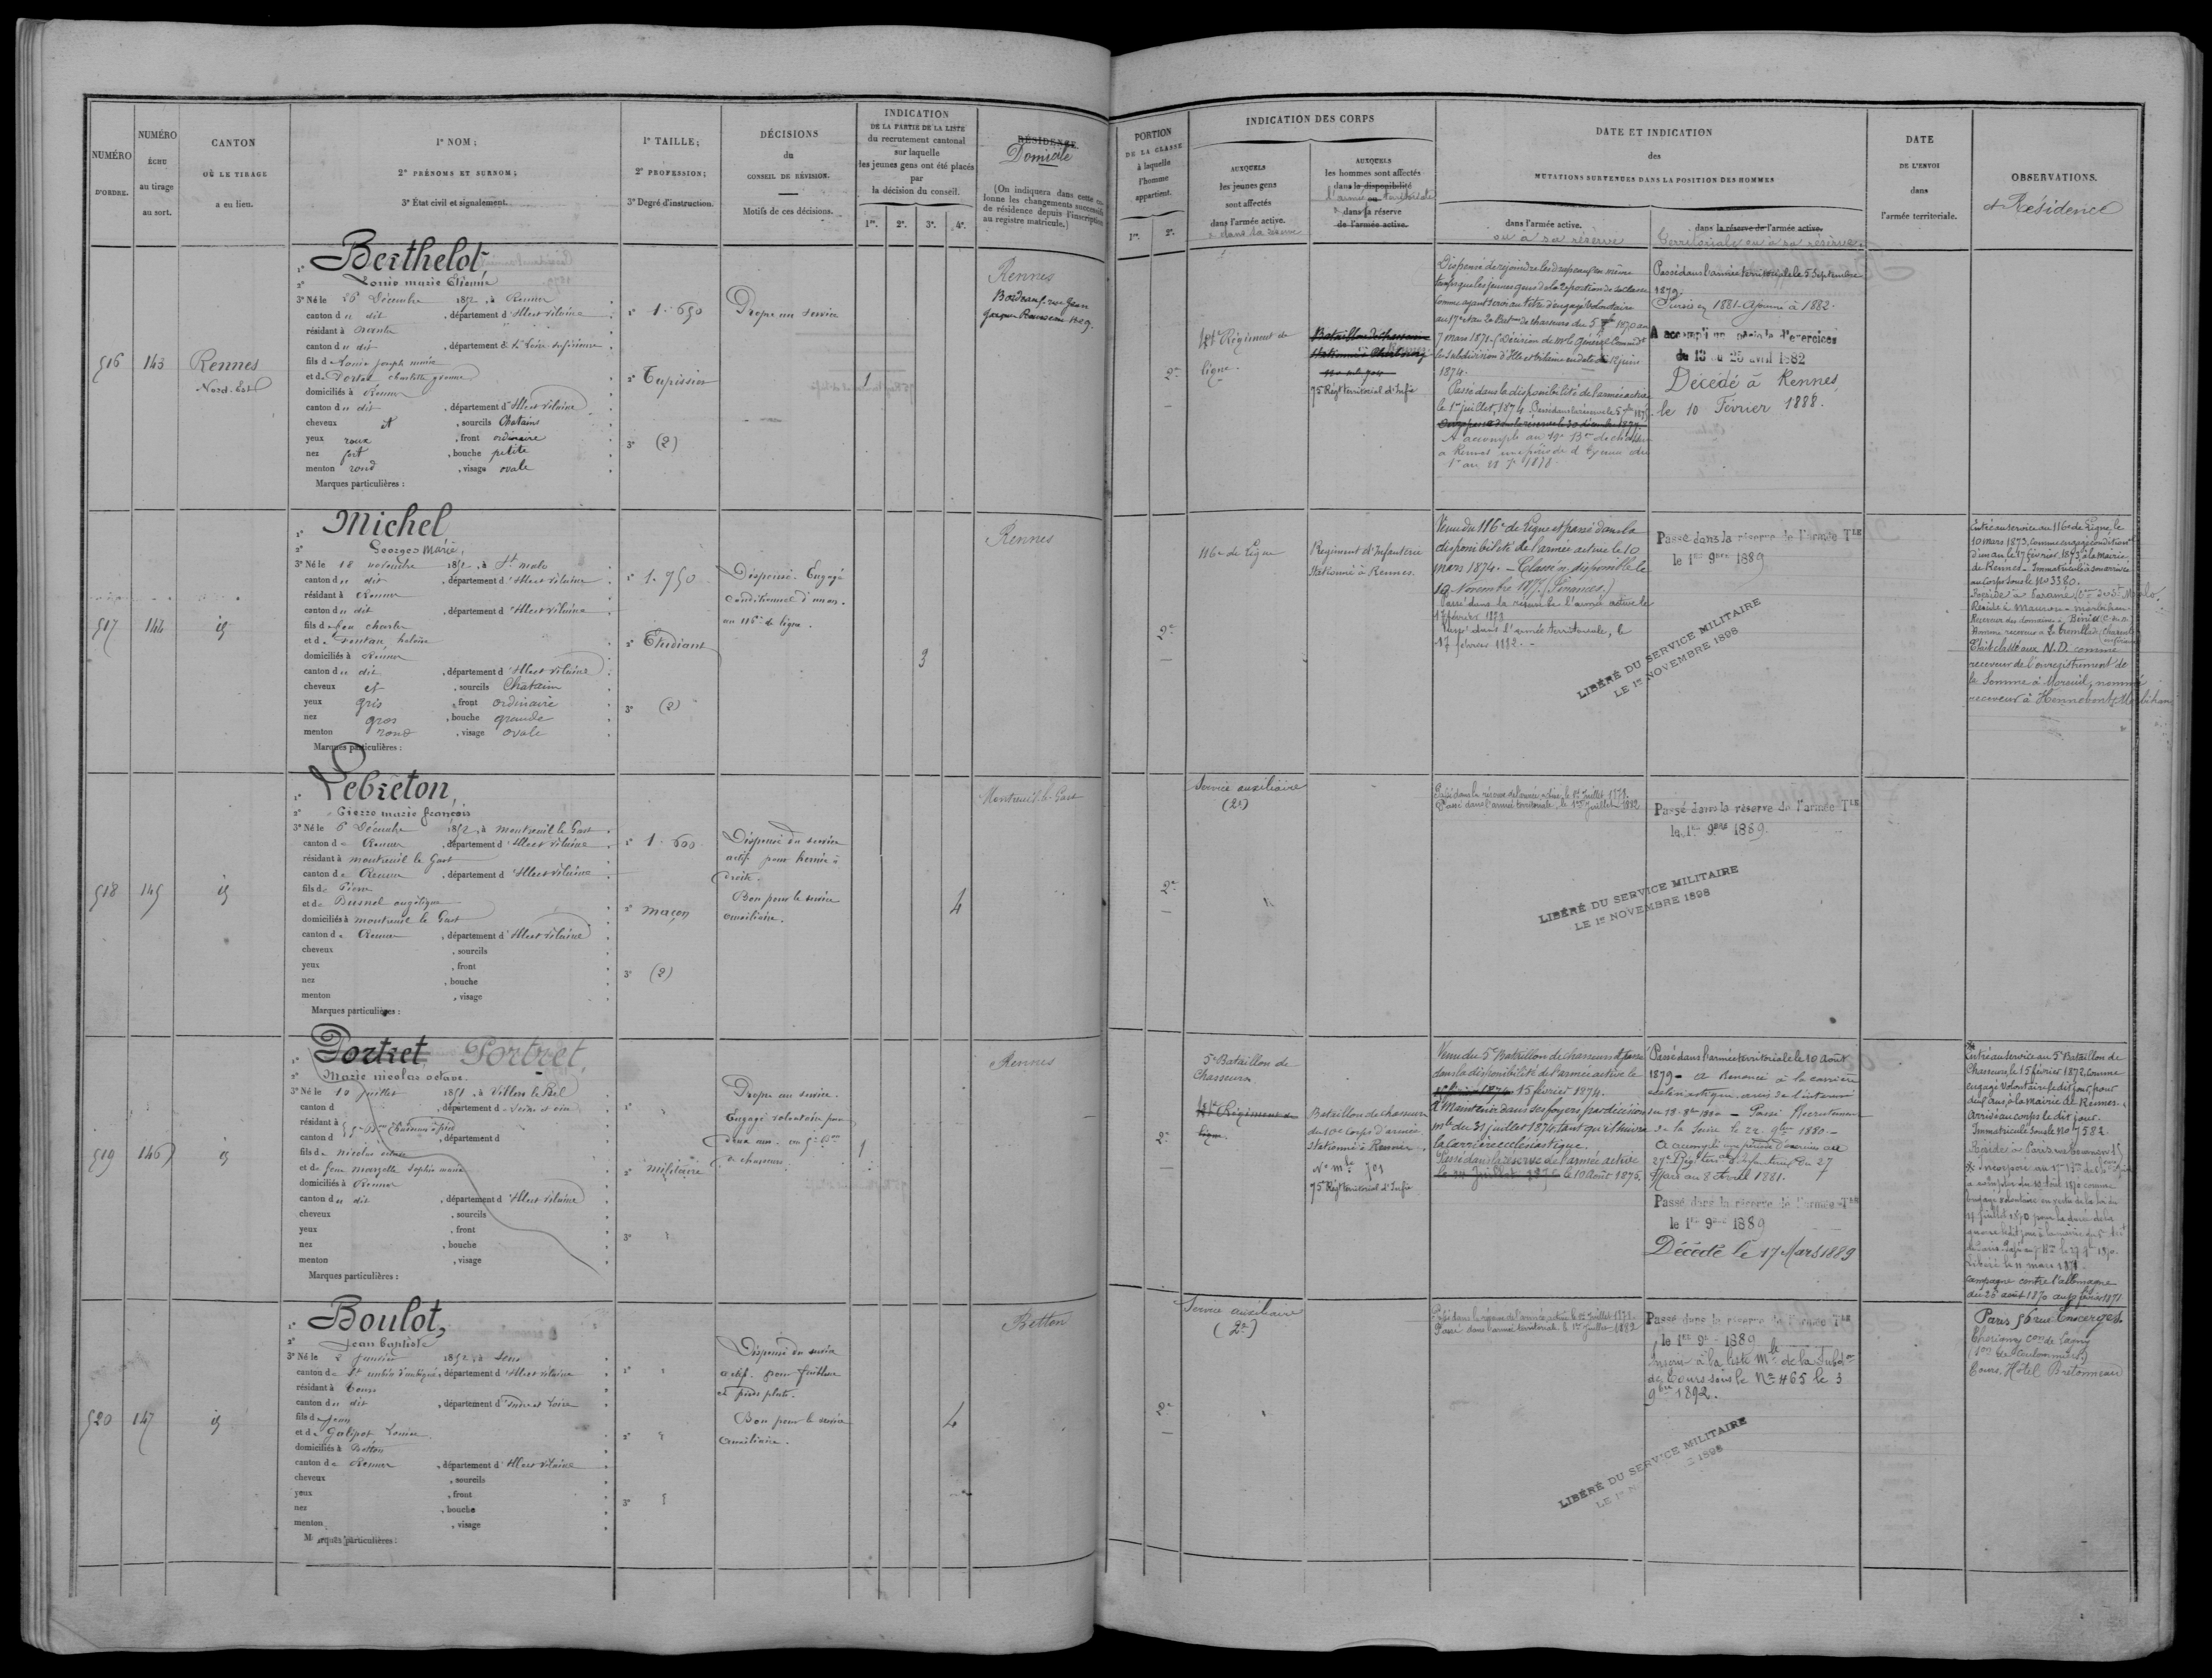 NUMÉRO
D'ORDRE.
NUMÉRO
ÉCHU
au tirage
au sort.
CANTON
OÙ LE TIRAGE
a eu lieu.
1° NOM ;
2° PRÉNOMS ET SURNOM ;
3° État civil et signalement.
1° TAILLE ;
2° PROFESSION ;
3° Degré d'instruction.
DÉCISIONS
du
CONSEIL DE RÉVISION.
Motifs de ces décisions.
INDICATION
DE LA PARTIE DE LA LISTE
du recrutement cantonal
sur laquelle
les jeunes gens ont été placés
par
la décision du conseil.
1re. 2e. 3e. 4e.
RÉSIDENCE.
Domicile
(On indiquera dans cette co-
lonne les changements successifs
de résidence depuis l'inscription
au registre matricule.)
PORTION
DE LA CLASSE
à laquelle
l'homme
appartient.
1re. 2e.
INDICATION DES CORPS
AUXQUELS
les jeunes gens
sont affectés
dans l'armée active.
& dans la réserve
AUXQUELS
les hommes sont affectés
dans la disponibilité
ou
l'armée territoriale
& dans sa réserve
de l'armée active.
DATE ET INDICATION
des
MUTATIONS SURVENUES DANS LA POSITION DES HOMMES
dans l'armée active.
ou à sa réserve
dans la réserve de l'armée active.
Territoriale ou à sa réserve.
DATE
DE L'ENVOI
dans
l'armée territoriale.
OBSERVATIONS.
et Résidence
516
143
Rennes
Nord-Est
1° Berthelot
2° Louis marie Etienne
3° Né le 26 Décembre 1852, à Rennes
canton du dit, département d'Ille et Vilaine
résidant à Nantes
canton du dit, département de la Loire inférieure
fils de Louis joseph marie
et de charlotte yvonne
domiciliés à Rennes
canton du dit, département d'Ille et Vilaine
cheveux et, sourcils Chatains
yeux roux, front ordinaire
nez fort, bouche petite
menton rond, visage ovale
Marques particulières :
1° 1. 650
2° Tapissier
3° (2)
Propre au service
1
Rennes
Bordeaux, rue Jean
Jacques Rousseau N° 9.
2e
Régiment de
ligne.
Bataillon de Chasseurs
stationné à Cherbourg
75 Régt territorial d'Infie
Dispensé de rejoindre les drapeaux en même
temps que les jeunes gens de la 2e portion de sa classe
comme ayant servi au titre d'engagé volontaire
7 mars 1871. (Décision de Mr le Général Commandt
la subdivision d'Ille et Vilaine en date du 12 juin
1874.
Passé dans la disponibilité de l'armée active
le 1er juillet 1874.
Passé dans l'armée territoriale le 5 Septembre
1879.
Sursis en 1881. Ajourné à 1882.
A accompli une période d'exercices
du 13 au 25 avril 1882
Décédé à Rennes
le 10 Février 1888.
517
144
id
1° Michel
2° Georges Marie,
3° Né le 18 novembre 1852, à St malo
canton du dit, département d'Ille et Vilaine
résidant à Rennes
canton du dit, département d'Ille et Vilaine
fils de feu charles
et de Fontan, heloïse
domiciliés à Rennes
canton du dit, département d'Ille et Vilaine
cheveux et, sourcils Chatains
yeux gris, front ordinaire
nez gros, bouche grande
menton rond, visage ovale
Marques particulières :
1° 1. 750
2° Etudiant
3° (2)
Dispensé. Engagé
Conditionnel d'un an.
au 116e de ligne.
3
Rennes
2e
116e de Ligne
Régiment d'Infanterie
stationné à Rennes.
Venu du 116e de Ligne et passé dans la
disponibilité de l'armée active le 10
mars 1874. - Classé n. disponible le
12 Novembre 1877. (Finances.)
Passé dans la réserve de l'armée active le
17 février 1878
Passé dans l'armée territoriale, le
17 février 1882.-
Passé dans la réserve de l'armée Tle
le 1er 9bre 1889
LIBÉRÉ DU SERVICE MILITAIRE
LE 1er NOVEMBRE 1898
Entré au service au 116e de Ligne, le
10 mars 1873, comme engagé conditionel
d'un an le 17 février 1873, à la mairie
de Rennes. - Immatriculé à son arrivée
au Corps sous le No 3380.
Réside à Paramé, Con de St Malo.
Réside à Mauron - morbihan -
Receveur des domaines à Binic (C. du N.
Etait classé aux N.D. comme
receveur de l'enregistrement de
la Somme à Moreuil, nommé
receveur à Hennebont, Morbihan
518
145
id
1° Lebreton,
2° Pierre marie françois
3° Né le 6 Décembre 1852, à montreuil le Gast
canton de Rennes, département d'Ille et Vilaine
résidant à montreuil le Gast
canton de Rennes, département d'Ille et Vilaine
fils de Pierre
et de Busnel angélique
domiciliés à montreuil le Gast
canton de Rennes, département d'Ille et Vilaine
cheveux, sourcils
yeux, front
nez, bouche
menton, visage
Marques particulières :
1° 1. 600
2° maçon
3° (2)
Dispensé du service
actif pour hernie à
droite.
Bon pour le service
auxiliaire.
4
Montreuil-le-Gast
2e
Service auxiliaire
(2e)
Passé dans la réserve de l'armée active, le 1er Juillet 1878.
Passé dans l'armée territoriale, le 1er Juillet 1882
Passé dans la réserve de l'armée Tle
le 1er 9bre 1889.
LIBÉRÉ DU SERVICE MILITAIRE
LE 1er NOVEMBRE 1898
519
146
id
1° Portret Portret,
2° Marie nicolas octave
3° Né le 10 juillet 1851, à Villers le Bel
canton d, département de Seine et oise
résidant à 5e Bon Chasseurs à pied
canton d, département d
fils de nicolas octave
et de feue sophie marie
domiciliés à Rennes
canton du dit, département d'Ille et Vilaine
cheveux, sourcils
yeux, front
nez, bouche
menton, visage
Marques particulières :
1°
2° militaire
3°
Propre au service.
Engagé volontaire pour
deux ans. au 5e Bon
de chasseurs.
1
Rennes
2e
5e Bataillon de
Chasseurs
Régiment de
ligne.
Bataillon de chasseurs
du 10e Corps d'armée.
stationné à Rennes.
No mle 701
75 Régt territorial d'Infie
Venu du 5e Bataillon de chasseurs et passé
dans la disponibilité de l'armée active le
15 février 1874.
Maintenu dans ses foyers par décision
mlle du 31 juillet 1874, tant qu'il suivra
la carrière ecclésiastique.
Passé dans la réserve de l'armée active
le 10 Août 1875.
Passé dans l'armée territoriale le 10 Août
1879 - A Renoncé à la carrière
ecclésiastique. avis de l'interessé
du 18. 8bre 1880 - Passé au Recrutement
de la Seine le 22. 9bre 1880. -
A accompli une période d'exercices au
27e Régt terrial d'Infanterie du 27
Mars au 8 Avril 1881.
Passé dans la réserve de l'armée Tle
le 1er 9bre 1889
Décédé le 17 Mars 1889
Entré au service au 5e Bataillon de
Chasseurs, le 15 février 1872, comme
engagé volontaire le dit jour, pour
deux ans, à la mairie de Rennes.
Arrivé au corps le dit jour.
Immatriculé sous le No 7582.
Libéré le 11 mars 1871.
campagne contre l'allemagne
du 20 août 1870 au février 1871
520
147
id
1° Boulot,
2° Jean baptiste
3° Né le 2 Janvier 1852, à Sens
canton de St aubin d'aubigné, département d'Ille et Vilaine
résidant à Tours
canton du dit, département d'Indre et Loire
fils de Jean
et de Galipot Louise
domiciliés à Betton
canton de Rennes, département d'Ille et Vilaine
cheveux, sourcils
yeux, front
nez, bouche
menton, visage
Marques particulières :
1°
2°
3°
Dispensé du service
actif. pour faiblesse
et pieds plats.
Bon pour le service
auxiliaire.
4
Betton
2e
Service auxiliaire
(2e)
Passé dans la réserve de l'armée active le 1er Juillet 1878.
Passé dans l'armée territoriale le 1er Juillet 1882
Passé dans la réserve de l'armée Tle
le 1er 9bre 1889
Inscrit à la liste mle de la Subdon
de Tours sous le No 465 le 3
9bre 1892.
LIBÉRÉ DU SERVICE MILITAIRE
LE 1er N 1898
Paris, 56 rue
Thorigny con de Lagny
Tours, Hôtel Bretonneau